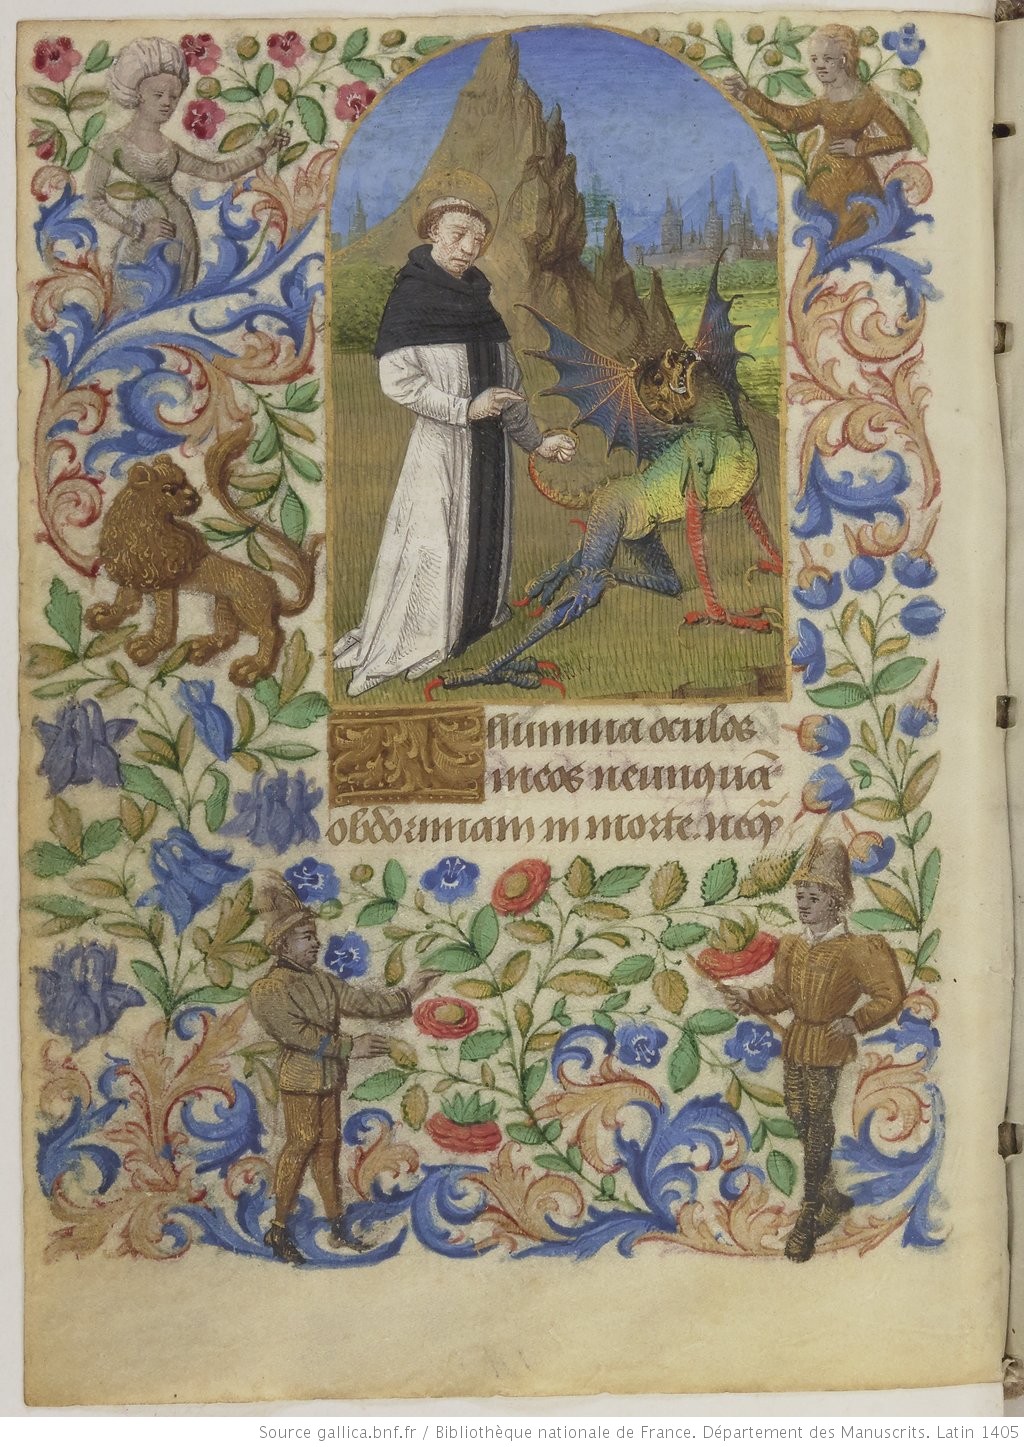 Illumina oculos
meos ne unquã
obdormiam in morte. neq̃
Source gallica.bnf.fr / Bibliothèque nationale de France. Département des Manuscrits. Latin 1405